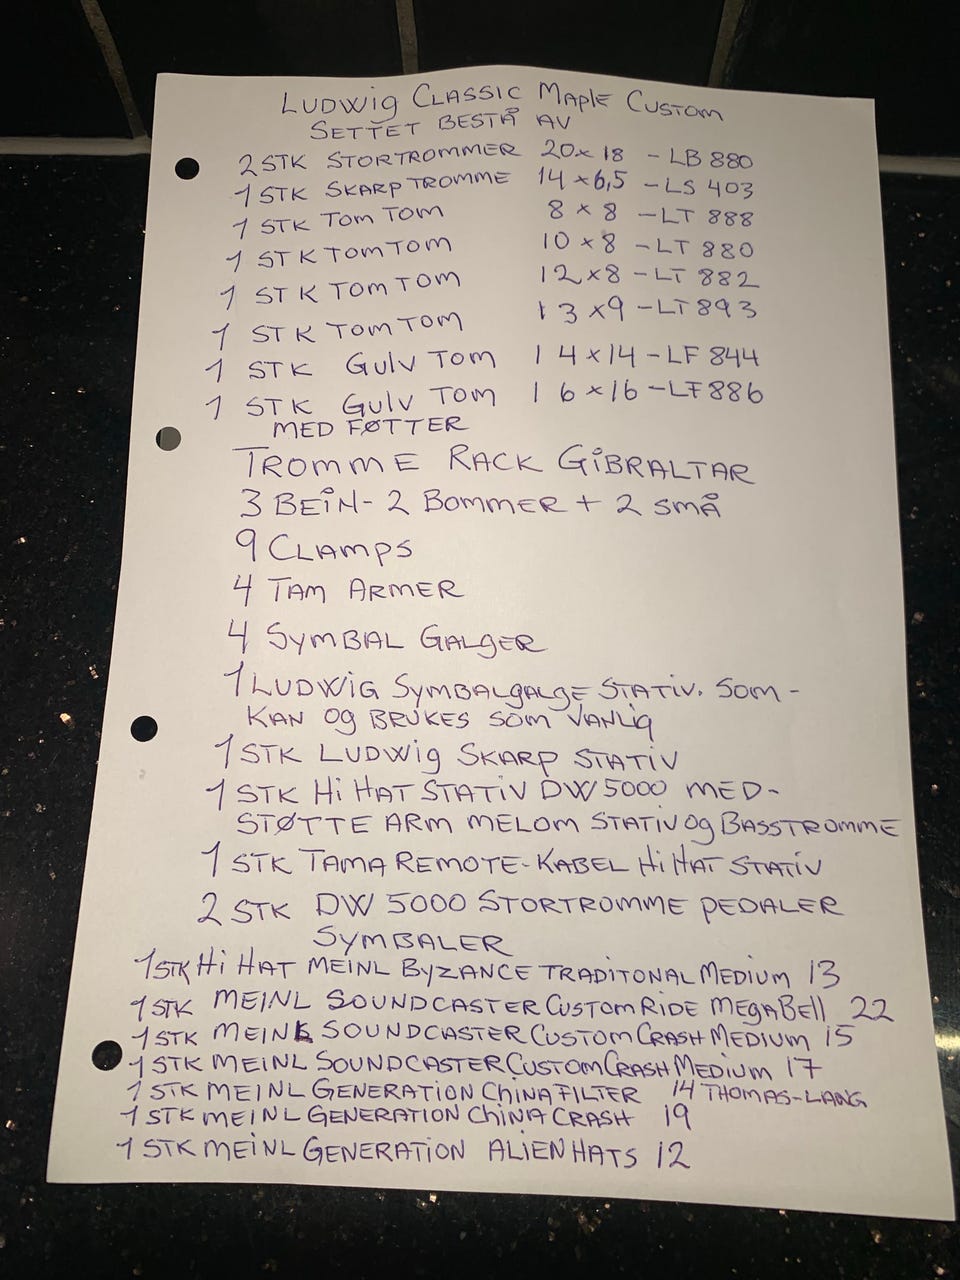 LUDWIG CLASSIC MAPLE CUSTOM
SETTET BESTÅ AV
2 STK STORTROMMER 20 x 18 - LB 880
1 STK SKARP TROMME 14 x 6,5 - LS 403
1 STK TOM TOM 8 x 8 - LT 888
1 STK TOM TOM 10 x 8 - LT 880
1 STK TOM TOM 12 x 8 - LT 882
1 STK TOM TOM 13 x 9 - LT 893
1 STK GULV TOM 14 x 14 - LF 844
1 STK GULV TOM 16 x 16 - LF 886
MED FØTTER
TROMME RACK GIBRALTAR
3 BEIN - 2 BOMMER + 2 SMÅ
9 CLAMPS
4 TAM ARMER
4 SYMBAL GALGER
1 LUDWIG SYMBALGALGE STATIV. SOM -
KAN OG BRUKES SOM VANLIG
1 STK LUDWIG SKARP STATIV
1 STK HI HAT STATIV DW 5000 MED -
STØTTE ARM MELOM STATIV OG BASSTROMME
1 STK TAMA REMOTE-KABEL HI HAT STATIV
2 STK DW 5000 STORTROMME PEDALER
SYMBALER
1 STK HI HAT MEINL BYZANCE TRADITONAL MEDIUM 13
1 STK MEINL SOUNDCASTER CUSTOM RIDE MEGABELL 22
1 STK MEINL SOUNDCASTER CUSTOM CRASH MEDIUM 15
1 STK MEINL SOUNDCASTER CUSTOM CRASH MEDIUM 17
1 STK MEINL GENERATION CHINA FILTER 14 THOMAS-LANG
1 STK MEINL GENERATION CHINA CRASH 19
1 STK MEINL GENERATION ALIEN HATS 12